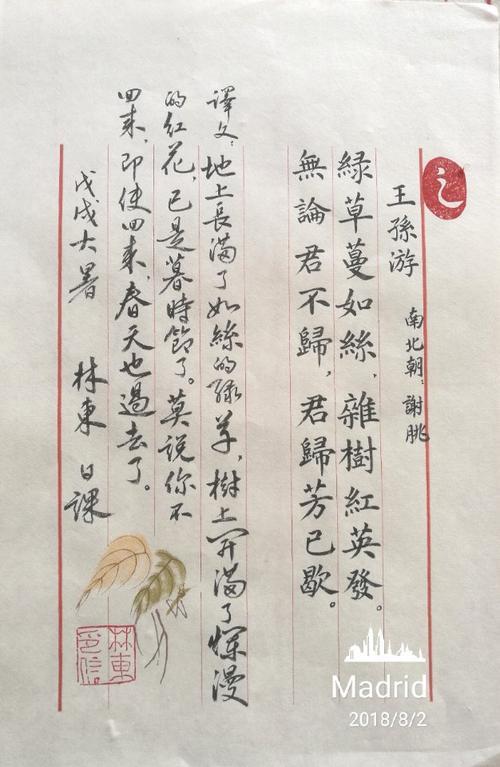 王孫游
南北朝：謝朓
綠草蔓如絲，雜樹紅英發。
無論君不歸，君歸芳已歇。
譯文：地上長滿了如絲的綠草，樹上開滿了爛漫
的紅花，已是暮時節了。莫說你不
回来，即使回来，春天也過去了。
戊戌大暑 林東 日課
林東
印信
Madrid
2018/8/2